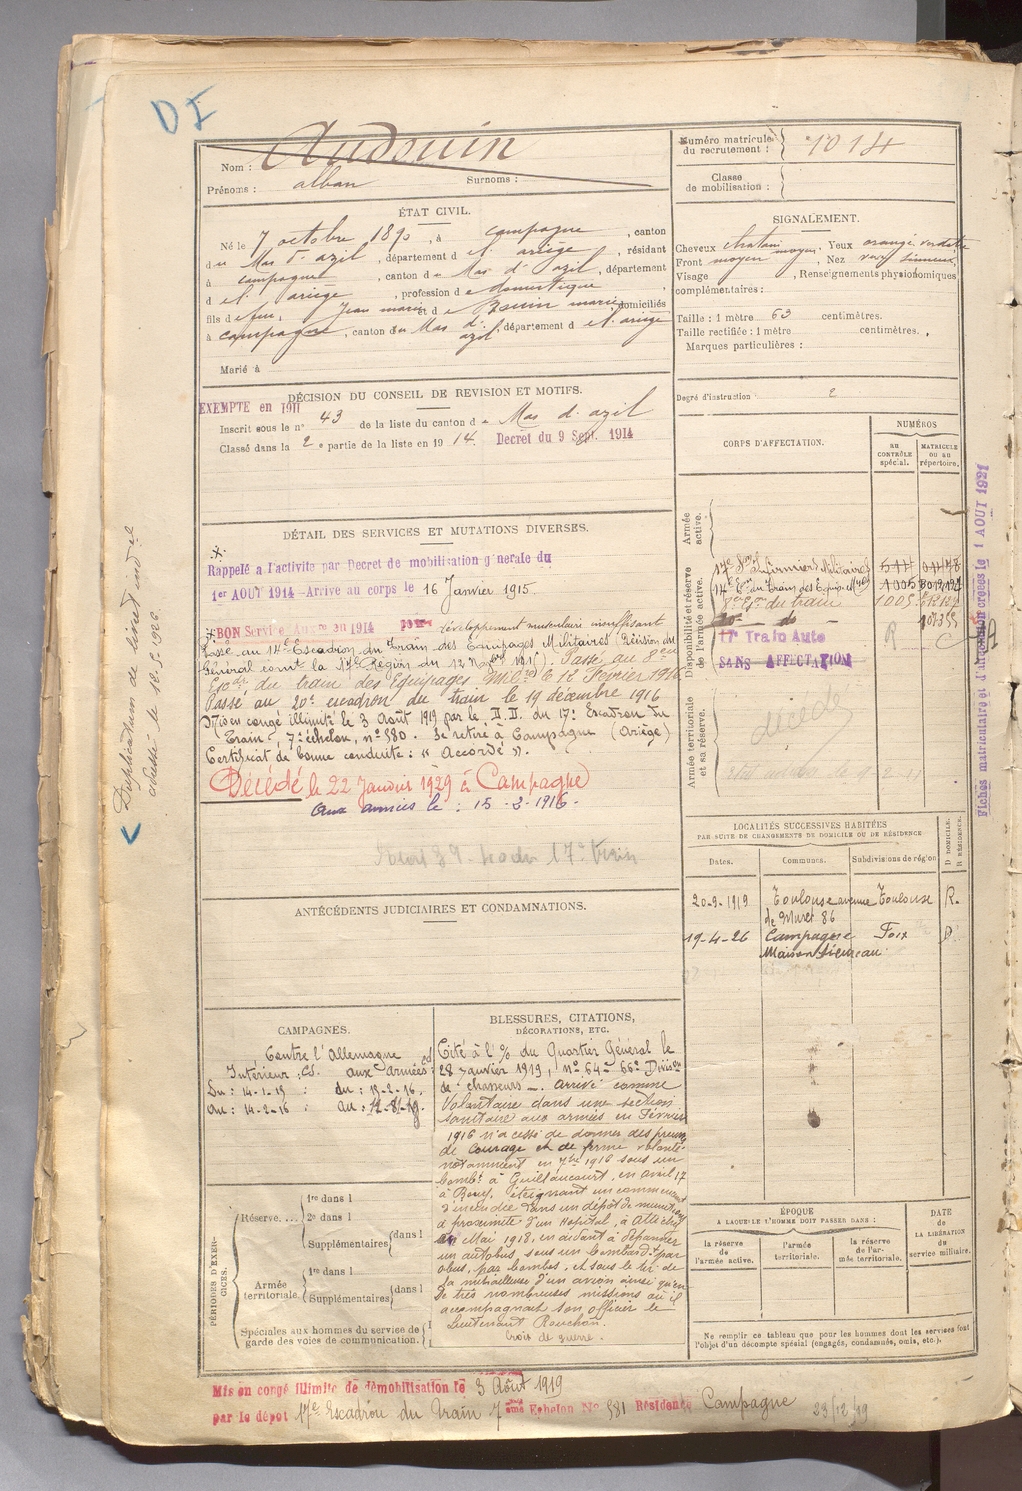 DI
Nom : Audouin
Prénoms : alban Surnoms :
Numéro matricule du recrutement : 1014
Classe de mobilisation :
ÉTAT CIVIL.
Né le 7 octobre 1890, à campagne, canton
du Mas d'azil, département d el ariège, résidant
à campagne, canton de Mas d'azil, département
d el. ariège, profession de domestique,
fils de feu, Jean marie et de Bouin marie domiciliés
à campagne, canton du Mas d'azil, département d el. ariège
Marié à
SIGNALEMENT.
Cheveux chatain moyen, Yeux orangé verdâtre
Front moyen, Nez sinueux,
Visage , Renseignements physionomiques
complémentaires :
Taille : 1 mètre 63 centimètres.
Taille rectifiée : 1 mètre centimètres.
Marques particulières :
Degré d'instruction : 2
DÉCISION DU CONSEIL DE REVISION ET MOTIFS.
EXEMPTE en 1911
Inscrit sous le n° 43 de la liste du canton de Mas d'azil
Classé dans la 2e partie de la liste en 1914. Decret du 9 Sept. 1914
CORPS D'AFFECTATION.
NUMÉROS
AU CONTRÔLE spécial.
MATRICULE OU AU répertoire.
Armée active.
Disponibilité et réserve de l'armée active.
17e Son Infirmiers Militaires 544
14e Eon du Train des Equip. Mres 1005
8e Eon du train 1005
20e do
107355
17e Train Auto R C
SANS AFFECTATION
Armée territoriale et sa réserve.
décédé
DÉTAIL DES SERVICES ET MUTATIONS DIVERSES.
Rappelé a l'activite par Decret de mobilisation générale du
1er AOUT 1914 - Arrive au corps le 16 Janvier 1915.
BON Service Auxre en 1914 pour développement musculaire insuffisant
Passé au 14e Escadron du Train des Equipages Militaires (Décision du
Général comt la 17e Région du 12 Novbre 1915). Passé au 8eme
Escon du train des Equipages Milres le 12 Février 1916
Passé au 20e escadron du train le 19 décembre 1916
Mis en congé illimité le 3 Août 1919 par le D.D. du 17e Escadron du
Train, 7e échelon, n° 580. Se retire à Campagne (Ariège)
Certificat de bonne conduite : « Accordé ».
Décédé le 22 Janvier 1929 à Campagne
Aux armées le : 15-2-1916.
Duplicatum de livret individuel
adressé le 12-5-1926
Fiches matriculaire et d'affection créées le 1 AOUT 1921
LOCALITÉS SUCCESSIVES HABITÉES
PAR SUITE DE CHANGEMENTS DE DOMICILE OU DE RÉSIDENCE.
Dates. Communes. Subdivisions de région D DOMICILE. R RÉSIDENCE.
20-9-1919 Toulouse avenue de Muret 86 Toulouse R.
19-4-26 Campagne Foix D.
ANTÉCÉDENTS JUDICIAIRES ET CONDAMNATIONS.
CAMPAGNES.
Contre l'Allemagne
Intérieur : CS. aux armées :
Du : 14-1-15 : du : 15-2-16.
Au : 14-2-16 : au : 12-8-19.
BLESSURES, CITATIONS,
DÉCORATIONS, ETC.
Cité à l'O/ du Quartier Général le
28 Janvier 1919, n° 64 - 66e Division
de chasseurs - . Arrivé comme
Volontaire dans une section
sanitaire aux armées en Février
1916 n'a cessé de donner des preuves
de courage et de ferme volonté
notamment en 7bre 1916 sous un
bombt à Guillaucourt, en avril 17
à Bouy, éteignant un commencement
d'incendie dans un dépôt de munitions
à proximité d'un Hopital, à Attichy
en Mai 1918, en aidant à dépanner
un autobus, sous un bombardt par
obus, par bombes, et sous le tir de
la mitrailleuse d'un avion ainsi qu'en
de très nombreuses missions où il
accompagnait son officier le
Lieutenant Rouchon.
Croix de guerre.
PÉRIODES D'EXERCICES.
Réserve....
1re dans l
2e dans l
Supplémentaires dans l
Armée territoriale
1re dans l
Supplémentaires dans l
Spéciales aux hommes du service de
garde des voies de communication.
ÉPOQUE
A LAQUELLE L'HOMME DOIT PASSER DANS :
DATE DE LA LIBÉRATION du service militaire.
la réserve de l'armée active.
l'armée territoriale.
la réserve de l'armée territoriale.
Ne remplir ce tableau que pour les hommes dont les services font
l'objet d'un décompte spécial (engagés, condamnés, omis, etc.).
Mis en congé illimité de démobilisation le 3 Août 1919
par le dépot 17e Escadron du Train 7ème Echelon No 581 Résidence Campagne 23/12/19